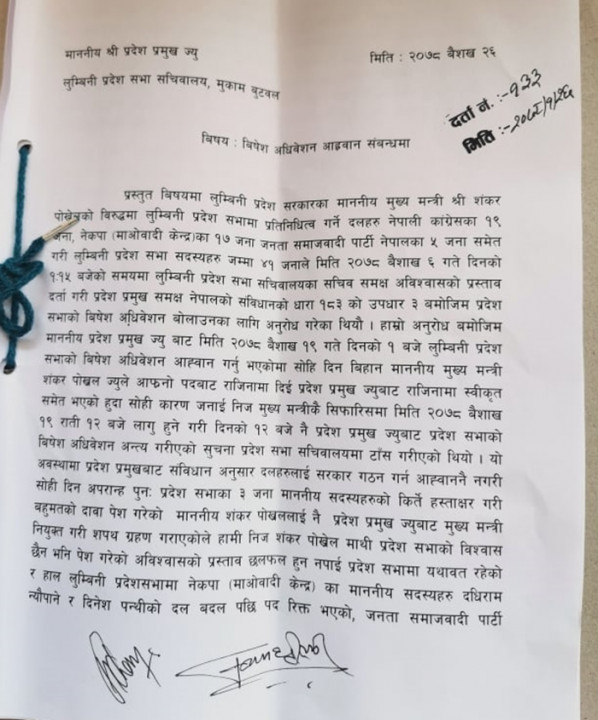 माननीय श्री प्रदेश प्रमुख ज्यु
मिति : २०७८ बैशख २६
लुम्बिनी प्रदेश सभा सचिवालय, मुकाम बुटवल
दर्ता नं. :- ९३३
मिति :- २०७८/१/२६
बिषय : बिषेश अधिवेशन आहृवान संबन्धमा
प्रस्तुत बिषयमा लुम्बिनी प्रदेश सरकारका माननीय मुख्य मन्त्री श्री शंकर
पोखेलको बिरुद्धमा लुम्बिनी प्रदेश सभामा प्रतिनिधित्व गर्ने दलहरु नेपाली कांग्रेसका १९
जना, नेकपा (माओवादी केन्द्र)का १७ जना जनता समाजवादी पार्टी नेपालका ५ जना समेत
गरी लुम्बिनी प्रदेश सभा सदस्यहरु जम्मा ४१ जनाले मिति २०७८ बैशाख ६ गते दिनको
१:१५ बजेको समयमा लुम्बिनी प्रदेश सभा सचिवालयका सचिव समक्ष अविश्वासको प्रस्ताव
दर्ता गरी प्रदेश प्रमुख समक्ष नेपालको संविधानको धारा १८३ को उपधार ३ बमोजिम प्रदेश
सभाको बिषेश अधिवेशन बोलाउनका लागि अनुरोध गरेका थियौ । हाम्रो अनुरोध बमोजिम
माननीय प्रदेश प्रमुख ज्यु बाट मिति २०७८ बैशाख १९ गते दिनको १ बजे लुम्बिनी प्रदेश
सभाको बिषेश अधिवेशन आह्वान गर्नु भएकोमा सोहि दिन बिहान माननीय मुख्य मन्त्री
शंकर पोखल ज्युले आफनो पदबाट राजिनामा दिई प्रदेश प्रमुख ज्युबाट राजिनामा स्वीकृत
समेत भएको हुदा सोही कारण जनाई निज मुख्य मन्त्रीकै सिफारिसमा मिति २०७८ बैशाख
१९ राती १२ बजे लागु हुने गरी दिनको १२ बजे नै प्रदेश प्रमुख ज्युबाट प्रदेश सभाको
बिषेश अधिवेशन अन्त्य गरीएको सुचना प्रदेश सभा सचिवालयमा टाँस गरीएको थियो । यो
अवस्थामा प्रदेश प्रमुखबाट संविधान अनुसार दलहरुलाई सरकार गठन गर्न आह्वाननै नगरी
सोही दिन अपरान्ह पुन: प्रदेश सभाका ३ जना माननीय सदस्यहरुको किर्ते हस्ताक्षर गरी
बहुमतको दावा पेश गरेको माननीय शंकर पोखललाई नै प्रदेश प्रमुख ज्युबाट मुख्य मन्त्री
नियुक्त गरी शपथ ग्रहण गराएकोले हामी निज शंकर पोखेल माथी प्रदेश सभाको विश्वास
छैन भनि पेश गरेको अविश्वासको प्रस्ताव छलफल हुन नपाई प्रदेश सभामा यथावत रहेको
र हाल लुम्बिनी प्रदेशसभामा नेकपा (माओवादी केन्द्र) का माननीय सदस्यहरु दधिराम
न्यौपाने र दिनेश पन्थीको दल बदल पछि पद रिक्त भएको, जनता समाजवादी पार्टी